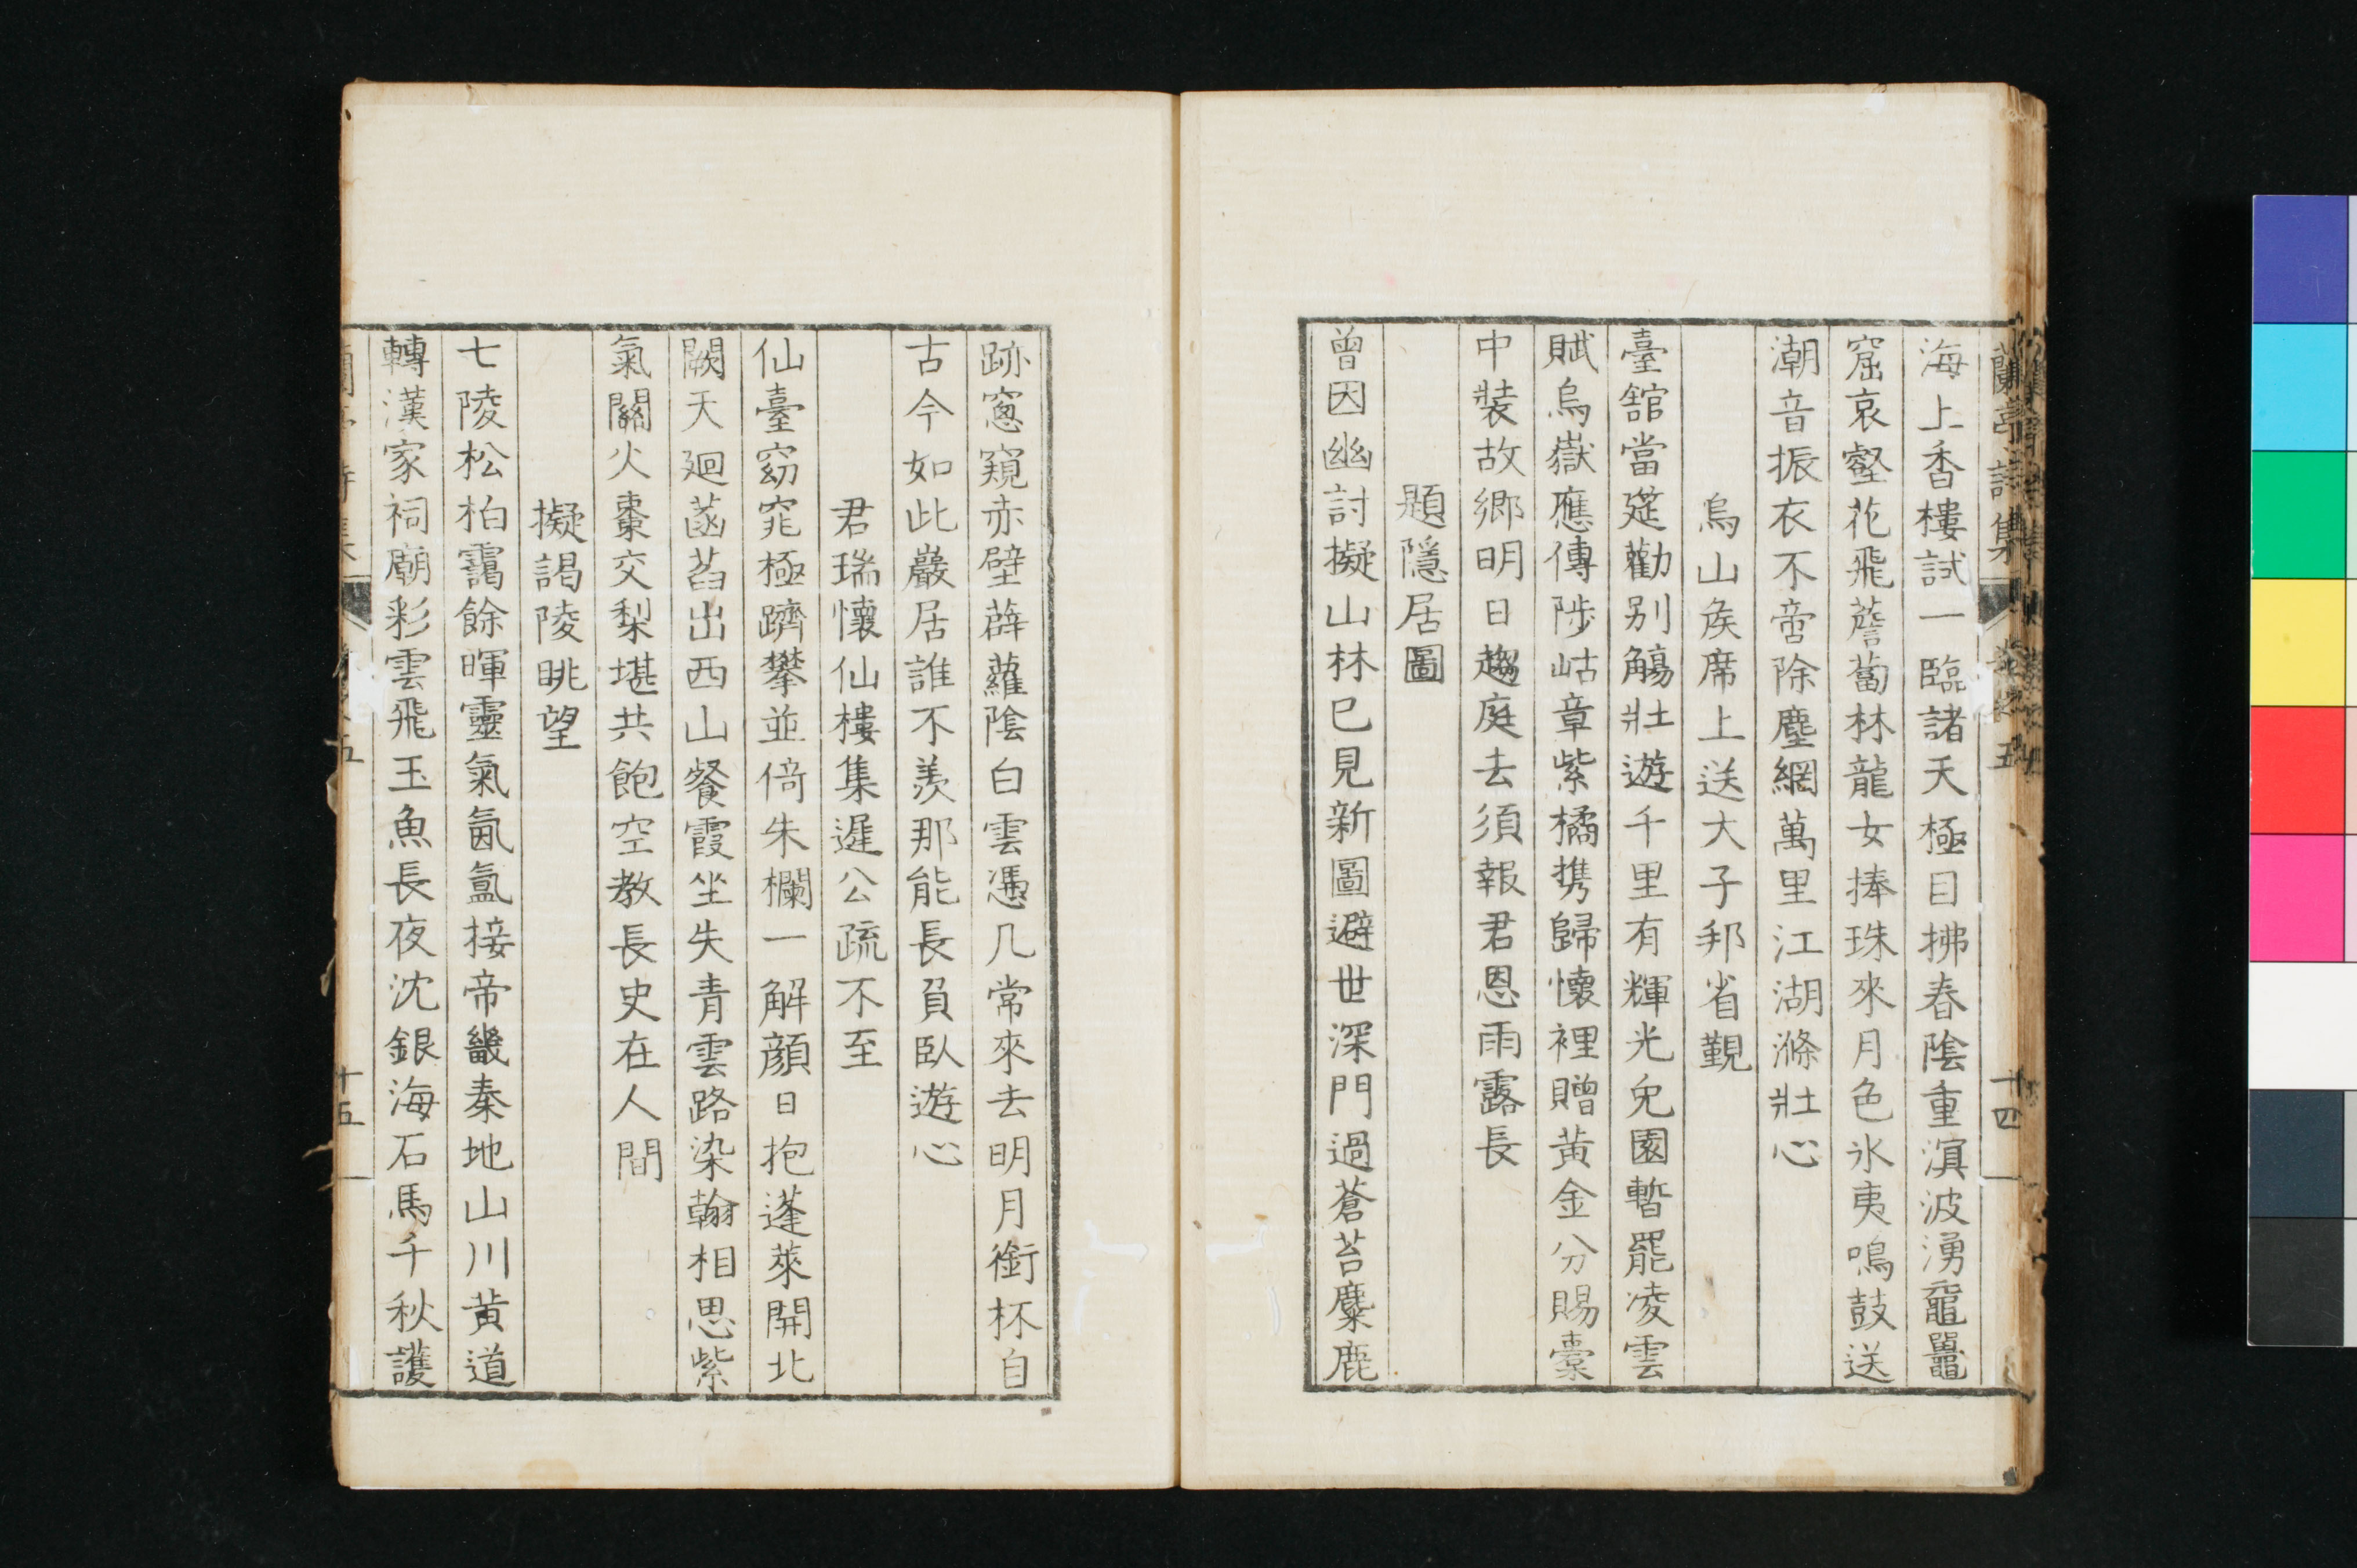 蘭亭詩集 卷之五 十四
海上香樓試一臨諸天極目拂春陰重溟波湧黿鼉
窟哀壑花飛薝蔔林龍女捧珠來月色氷夷鳴鼓送
潮音振衣不啻除塵網萬里江湖滌壯心
烏山矦席上送大子邦省覲
臺舘當筵勸別觴壯遊千里有輝光兔園暫罷凌雲
賦烏嶽應傳陟岵章紫橘携歸懷裡贈黃金分賜橐
中裝故鄉明日趨庭去須報君恩雨露長
題隱居圖
曾因幽討擬山林已見新圖避世深門過蒼苔麋鹿
跡窻窺赤壁薜蘿陰白雲憑几常來去明月銜杯自
古今如此巖居誰不羨那能長負臥遊心
君瑞懷仙樓集遲公疏不至
仙臺窈窕極躋攀並倚朱欄一解顔日抱蓬萊開北
闕天廻菡萏出西山餐霞坐失青雲路染翰相思紫
氣關火棗交梨堪共飽空教長史在人間
擬謁陵眺望
七陵松柏靄餘暉靈氣氤氳接帝畿秦地山川黃道
轉漢家祠廟彩雲飛玉魚長夜沈銀海石馬千秋護
五 十五